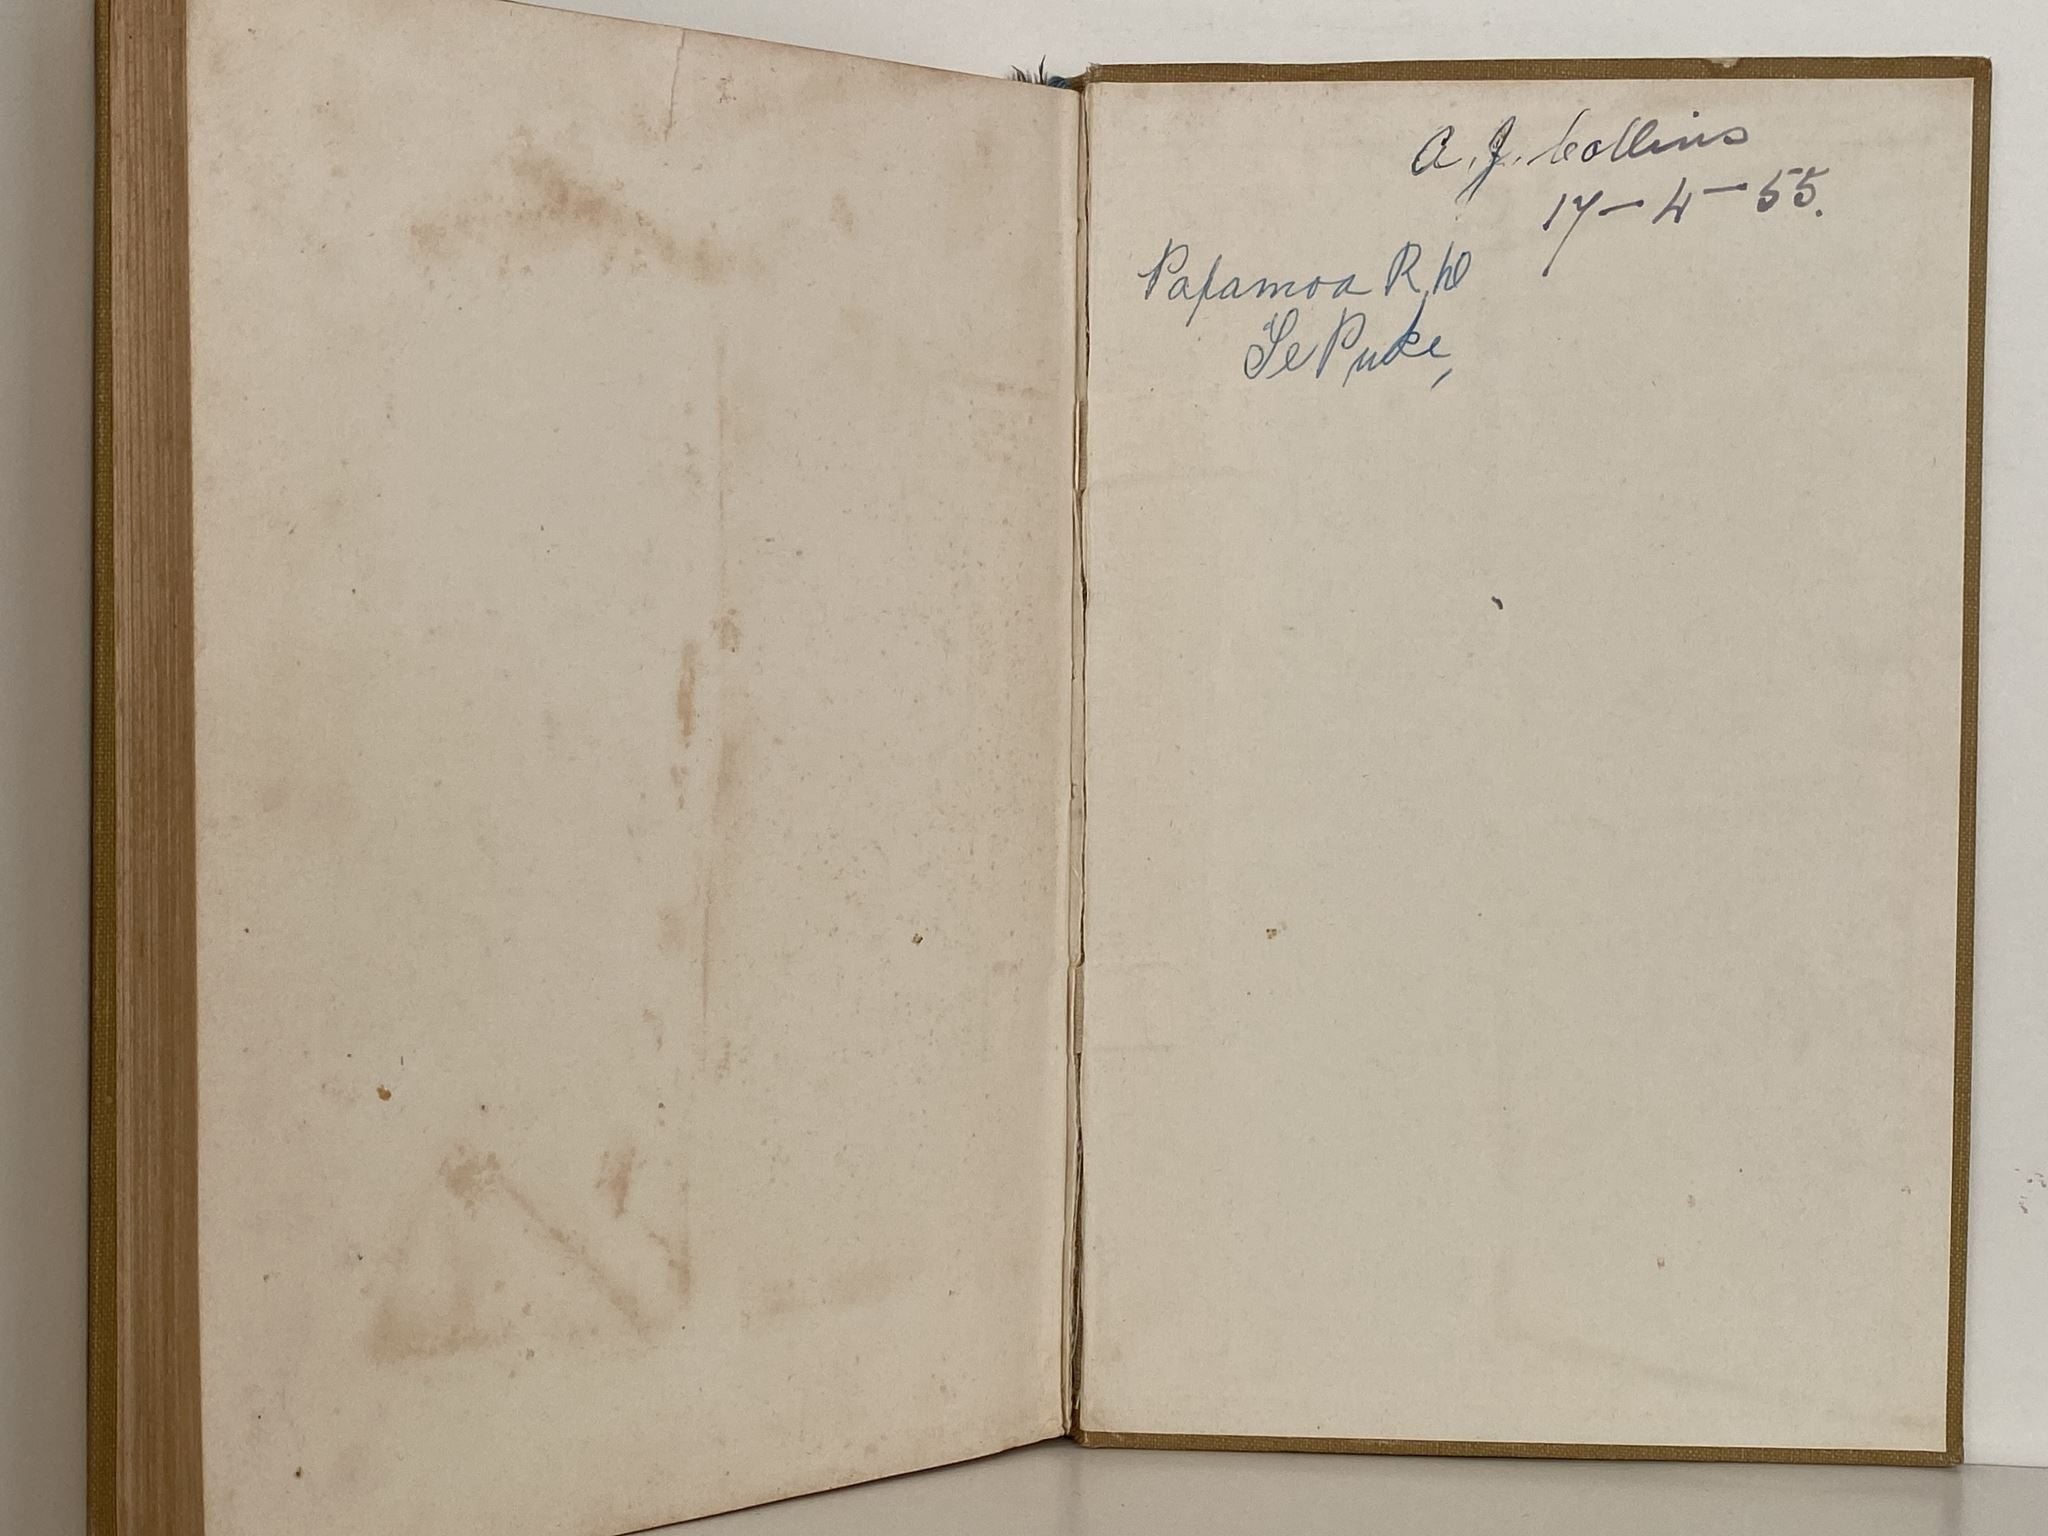 A. J. Collins
17-4-55.
Papamoa R.D
Te Puke,